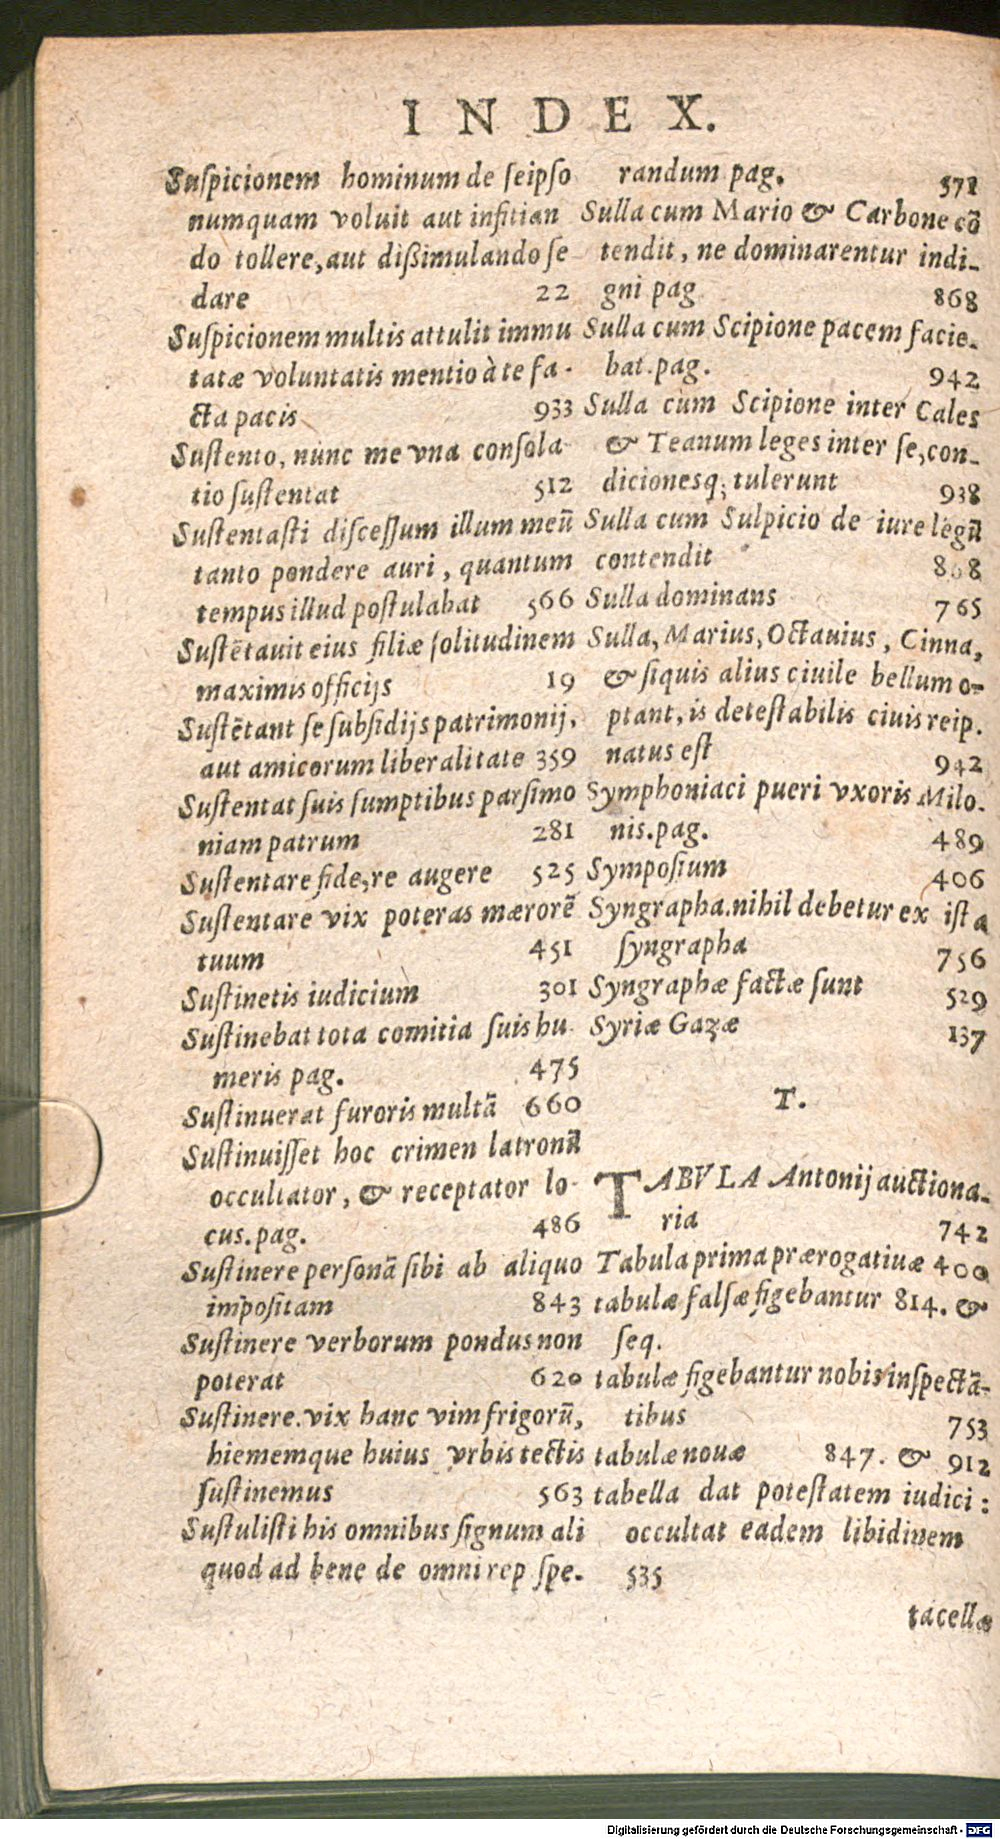 INDEX.
Suſpicionem hominum de ſeipſo
numquam voluit aut infitian
do tollere, aut dißimulando ſe
dare 22
Suſpicionem multis attulit immu
tatæ voluntatis mentio à te fa-
cta pacis 933
Suſtento, nunc me vna conſola
tio ſuſtentat 512
Suſtentaſti diſceſſum illum meũ
tanto pondere auri, quantum
tempus illud poſtulabat 566
Suſtētauit eius filiæ ſolitudinem
maximis officijs 19
Suſtētant ſe ſubſidijs patrimonij,
aut amicorum liberalitate 359
Suſtentat ſuis ſumptibus parſimo
niam patrum 281
Suſtentare fide, re augere 525
Suſtentare vix poteras mærorē
tuum 451
Suſtinetis iudicium 301
Suſtinebat tota comitia ſuis hu-
meris pag. 475
Suſtinuerat furoris multã 660
Suſtinuiſſet hoc crimen latronũ
occultator, & receptator lo-
cus. pag. 486
Suſtinere perſonã ſibi ab aliquo
impoſitam 843
Suſtinere verborum pondus non
poterat 620
Suſtinere. vix hanc vim frigorũ,
hiememque huius vrbis tectis
ſuſtinemus 563
Suſtuliſti his omnibus ſignum ali
quod ad bene de omni rep ſpe-
randum pag. 571
Sulla cum Mario & Carbone cõ
tendit, ne dominarentur indi-
gni pag 868
Sulla cum Scipione pacem facie-
bat. pag. 942
Sulla cum Scipione inter Cales
& Teanum leges inter ſe, con-
dicionesq; tulerunt 938
Sulla cum Sulpicio de iure legũ
contendit
Sulla dominans 765
Sulla, Marius, Octauius, Cinna,
& ſiquis alius ciuile bellum o-
ptant, is deteſtabilis ciuis reip.
natus eſt 942
Symphoniaci pueri vxoris Milo-
nis. pag. 489
Sympoſium 406
Syngrapha. nihil debetur ex iſta
ſyngrapha 756
Syngraphæ factæ ſunt 529
Syriæ Gazæ 137
T.
TABVLA Antonij auctiona-
ria 742
Tabula prima prærogatiuæ 400
tabulæ falſæ figebantur 814. &
ſeq.
tabulæ figebantur nobis inſpectã-
tibus 753
tabulæ nouæ 847. & 912
tabella dat poteſtatem iudici:
occultat eadem libidinem
535
tacellæ
Digitalisierung gefördert durch die Deutsche Forschungsgemeinschaft - DFG